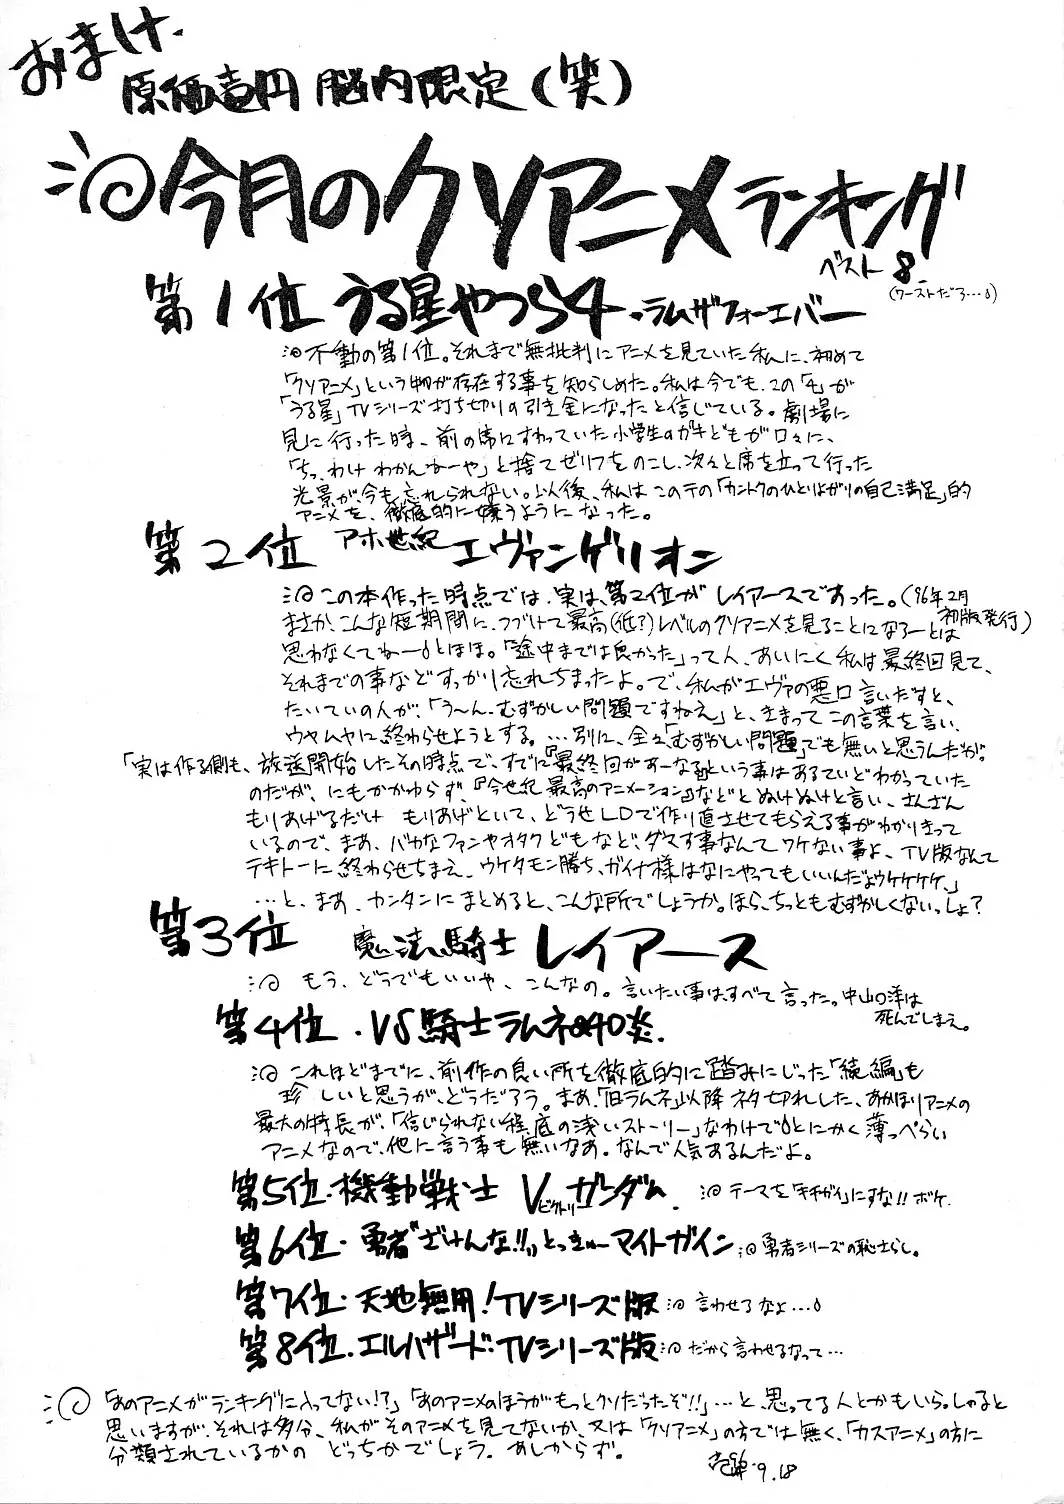 おまけ.
原価壱円 脳内限定(笑)
今月のクソアニメランキング
ベスト8
(ワーストだろ…)
第1位 うる星やつら4・ラムザフォーエバー
不動の第1位。それまで無批判にアニメを見ていた私に、初めて
「クソアニメ」という物が存在する事を知らしめた。私は今でも、この「4」が
「うる星」TVシリーズ打ち切りの引き金になったと信じている。劇場に
見に行った時、前の席にすわっていた小学生のガキどもが口々に、
「ちっ、わけわかんねーや」と捨てゼリフをのこし、次々と席を立って行った
光景が、今も忘れられない。以後、私はこのテの「カントクのひとりよがりの自己満足」的
アニメを、徹底的に嫌うようになった。
第2位 アホ世紀 エヴァンゲリオン
この本作った時点では、実は、第2位がレイアースであった。('96年2月
初版発行)
まさか、こんな短期間に、つづけて最高(低?)レベルのクソアニメを見ることになろーとは
思わなくてねーとほほ。「途中までは良かった」って人、あいにく私は最終回見て、
それまでの事などすっかり忘れちまったよ。で、私がエヴァの悪口言いだすと、
たいていの人が、「う〜ん、むずかしい問題ですねえ」と、きまってこの言葉を言い、
ウヤムヤに終わらせようとする。…別に、全々「むずかしい問題」でも無いと思うんだが。
「実は作る側も、放送開始したその時点で、すでに『最終回があーなる』という事はあるていどわかっていた
のだが、にもかかわらず、『今世紀最高のアニメーション』などとぬけぬけと言い、さんざん
もりあげるだけ もりあげといて、どうせLDで作り直させてもらえる事がわかりきって
いるので、まあ、バカなファンやオタクどもなど、ダマす事なんてワケない事よ、TV版なんて
テキトーに終わらせちまえ、ウケタモン勝ち、ガイナ様はなにやってもいいんだようケケケケ、」
…と、まあ、カンタンにまとめると、こんな所でしょうか。ほら、ちっともむずかしくないっしょ?
第3位 魔法騎士 レイアース
もう、どうでもいいや、こんなの。言いたい事は、すべて言った。中山〇洋は
死んでしまえ。
第4位・VS騎士ラムネ&40炎.
これほどまでに、前作の良い所を徹底的に踏みにじった「続編」も
珍しいと思うが、どうだろう。まあ、「旧ラムネ」以降ネタ切れした、あかほりアニメの
最大の特長が、「信じられない程底の浅いストーリー」なわけでとにかく薄っぺらい
アニメなので、他に言う事も無いなあ。なんで人気あるんだよ。
第5位・機動戦士 Vビクトリーガンダム テーマを「キチガイ」にすな!! ボケ.
第6位・勇者"ざけんな!!"とっきゅーマイトガイン 勇者シリーズの恥さらし。
第7位・天地無用!TVシリーズ版 言わせるなよ…
第8位・エルハザード・TVシリーズ版 だから言わせるなって…
「あのアニメがランキングに入ってない!?」「あのアニメのほうがもっとクソだったぞ!!」…と、思ってる人とかもいらっしゃると
思いますが、それは多分、私がそのアニメを見てないか、又は「クソアニメ」の方では無く、「カスアニメ」の方に
分類されているかの どっちかでしょう。あしからず。
9.18